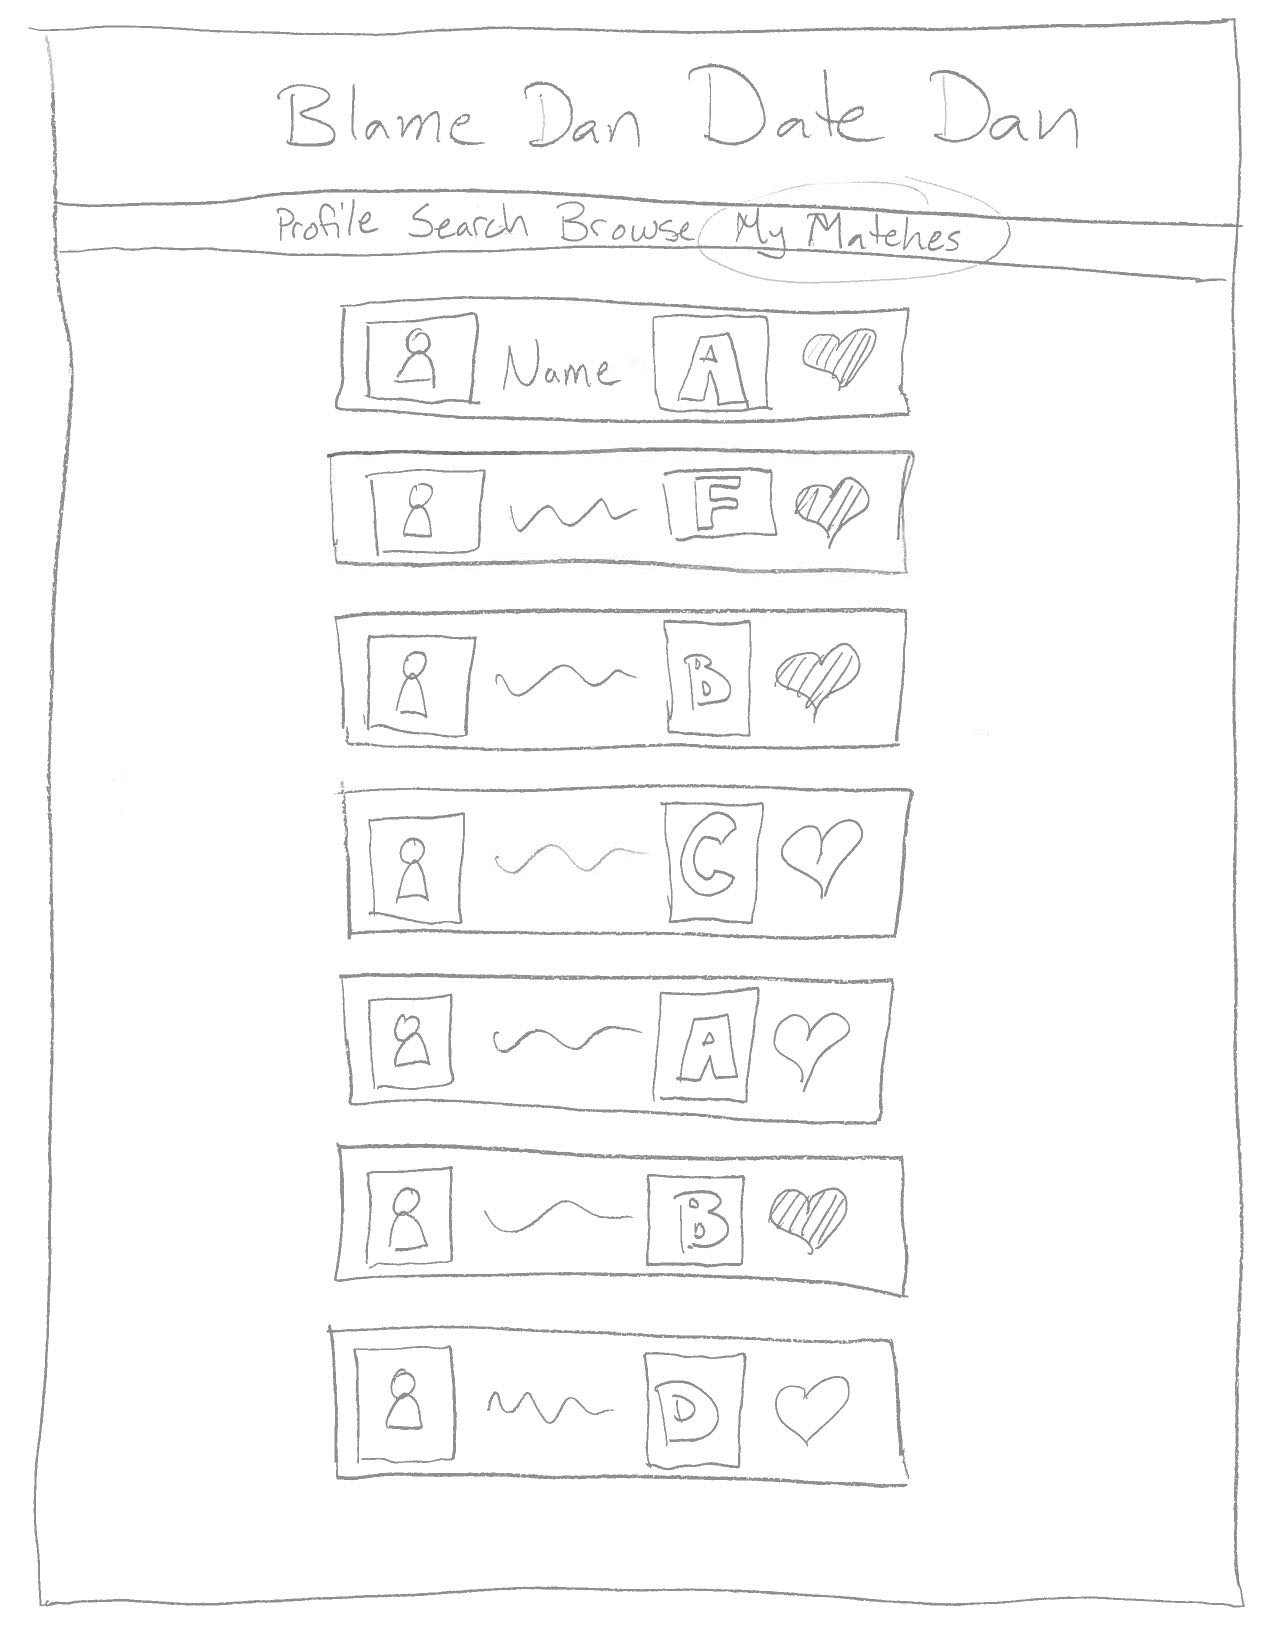 Blame Dan Date Dan
Profile Search Browse My Matches
Name A
F
B
C
A
B
D